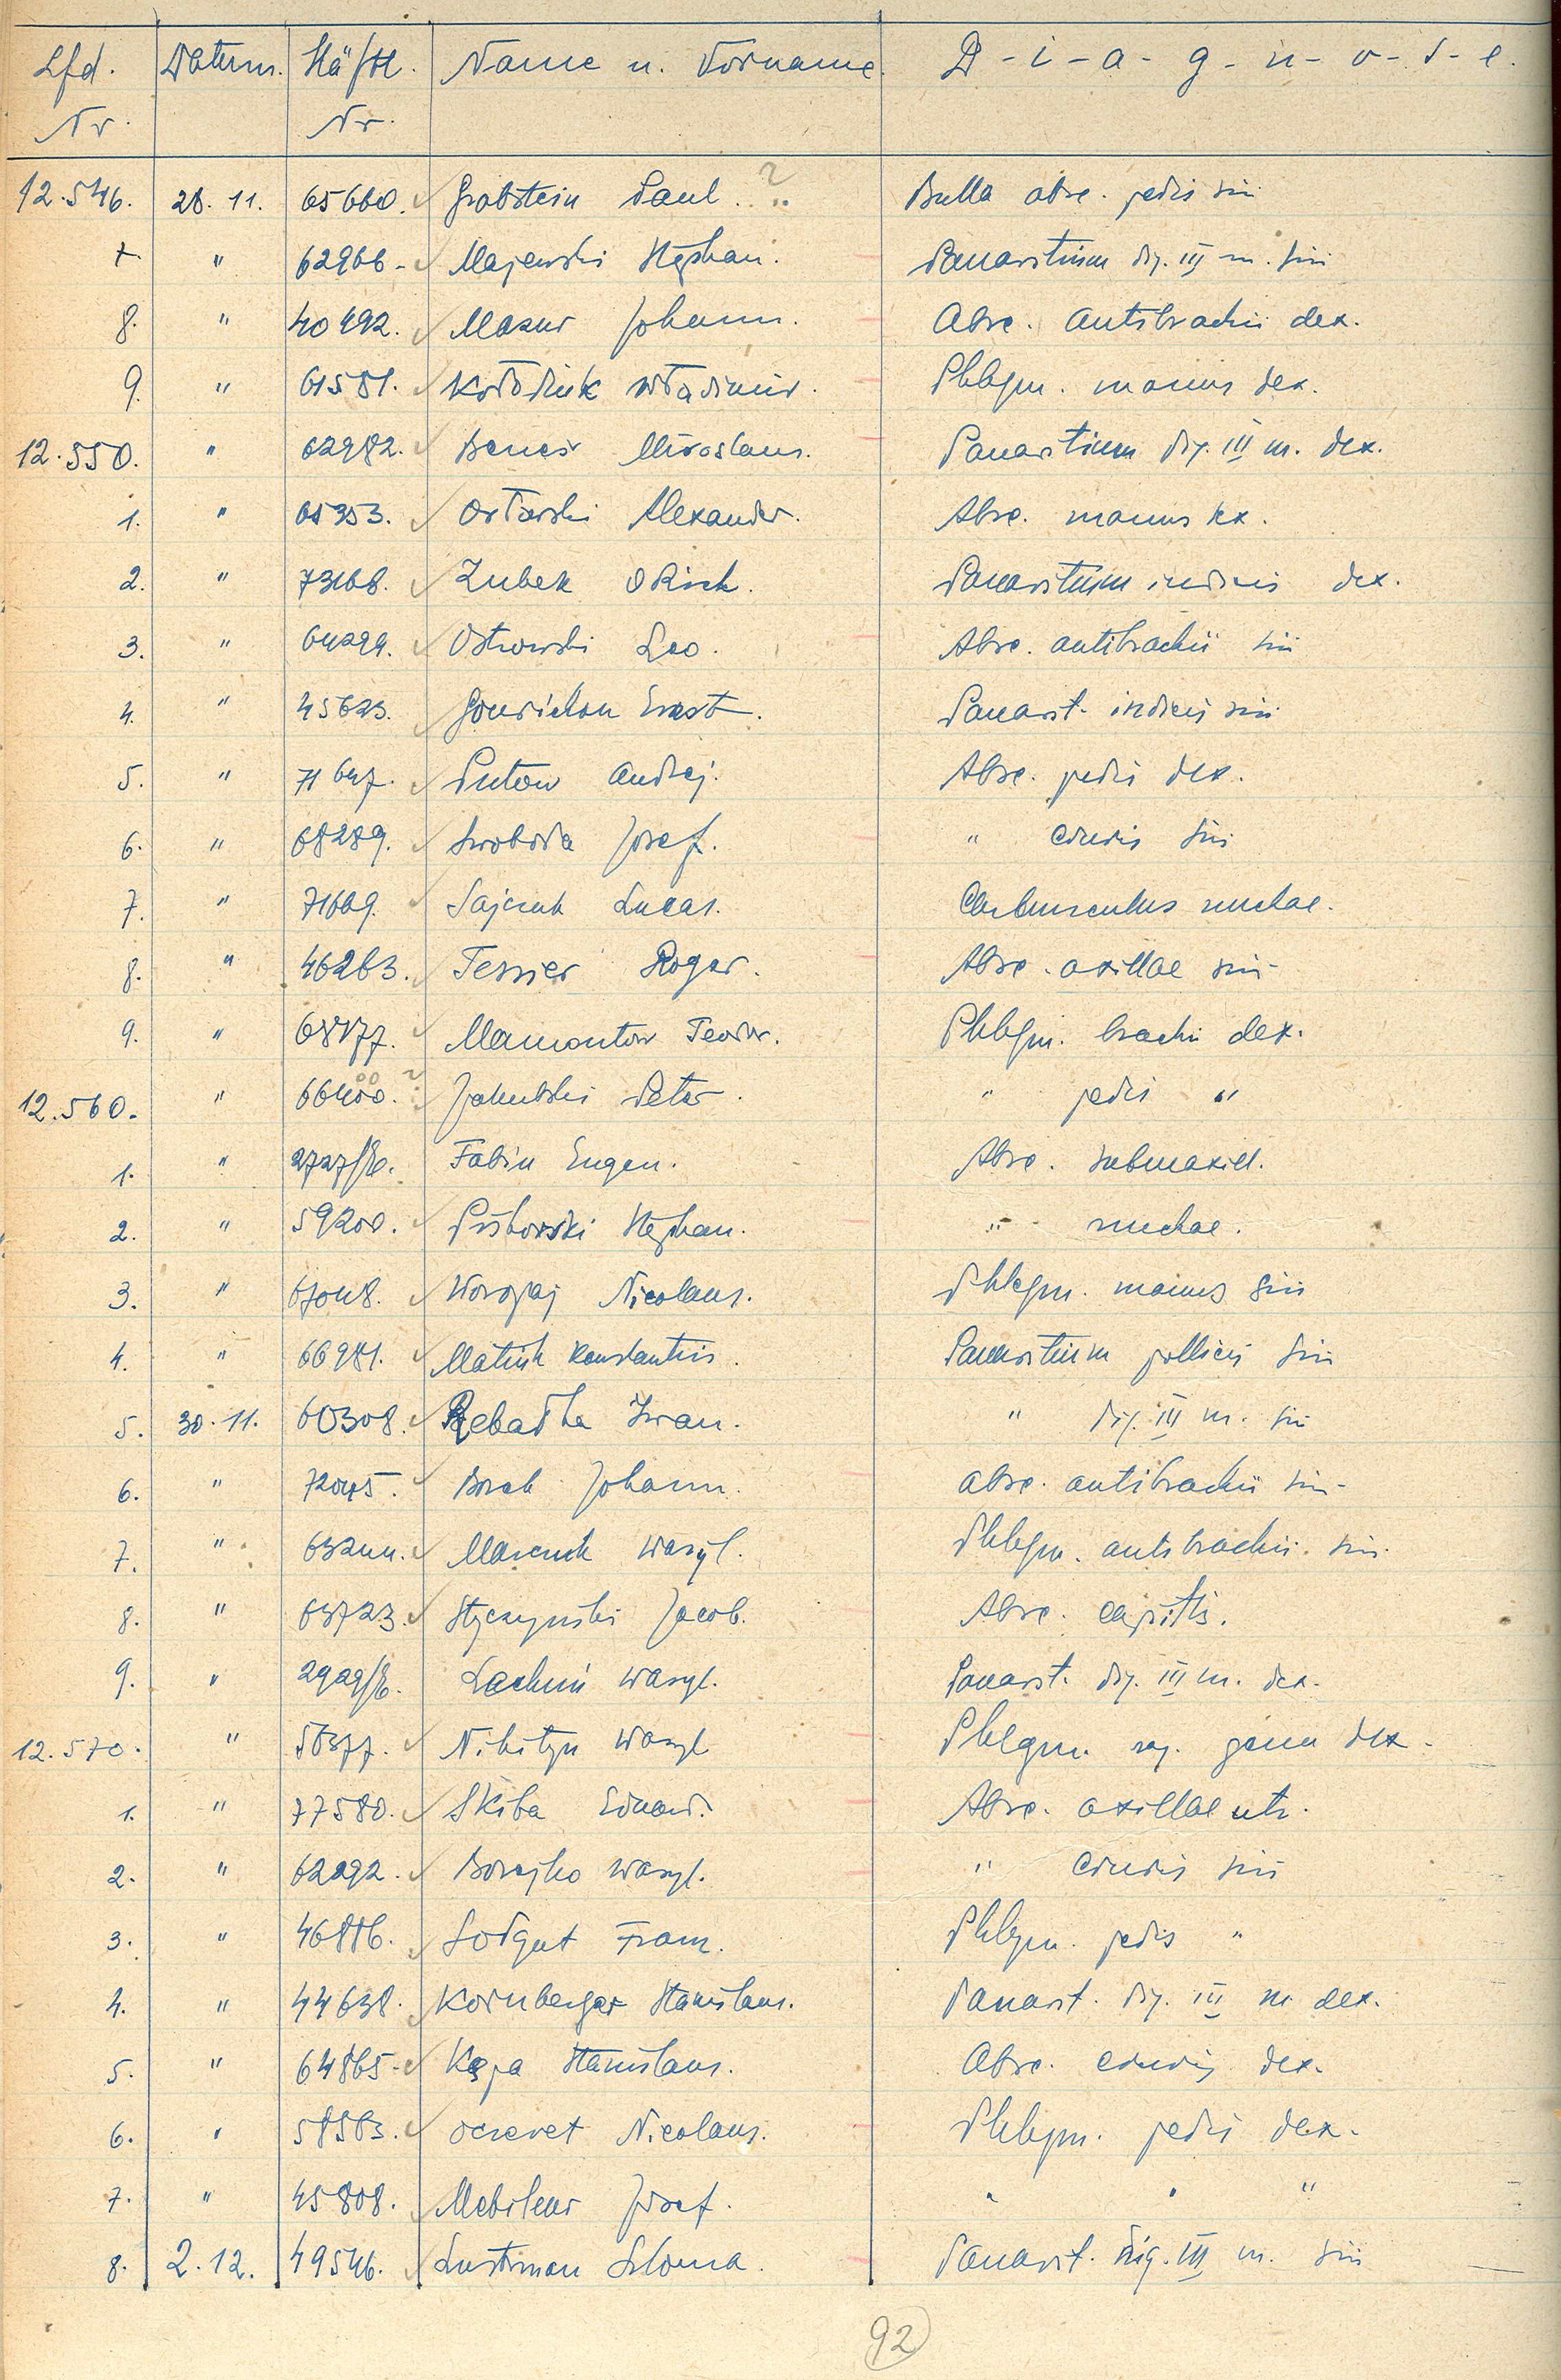 Lfd. Nr. Datum. Häftl. Nr. Name u. Vorname. D-i-a-g-n-o-s-e.
12.546. 28.11. 65660. Grobstein Paul. ? Bulla absc. pedis sin
7. " 62966. Majewski Stephan. Panaritium dig. III m. sin
8. " 40492. Mazur Johann. Absc. antibrachii dex.
9. " 61581. Wladimir. Phlegm. manus dex.
12.550. " 62982. Benes Miroslaus. Panaritium dig. III m. dex.
1. " 65353. Alexander. Absc. manus dex.
2. " 73168. Zubek Panaritium indicis dex.
3. " 64299. Ostrowski Leo. Absc. antibrachii sin
4. " 45623. Gourichon Ernst. Panarit. indicis sin
5. " 71647. Putow Andrej. Absc. pedis dex.
6. " 68289. Swoboda Josef. " cruris sin
7. " 71669. Sajczuk Lucas. Carbunculus nuchae.
8. " 46263. Tessier Roger. Absc. axillae sin
9. " 68177. Mamontow Teodor. Phlegm. brachii dex.
12.560. " 66400. ? Jakubski Peter. " pedis "
1. " 2727/E. Fabin Eugen. Absc. submaxill.
2. " 59200. Stephan. " nuchae.
3. " 67048. Woropaj Nicolaus. Phlegm. manus sin
4. " 66981. Matiuk Konstantin. Panaritium pollicis sin
5. 30.11. 60308. Iwan. " dig. III m. sin
6. " 72045. Johann. absc. antibrachii sin
7. " 63244. Marcuk Wasyl. Phlegm. antibrachii sin.
8. " 63723. Styczynski Jacob. Absc. capitis.
9. " 2929/E. Wasyl. Panarit. dig. III m. dex.
12.570. " 56377. Nikityn Wasyl Phlegm. reg. genu dex.
1. " 77580. Skiba Eduard. Absc. axillae utr.
2. " 62292. Borejko Wasyl. " cruris sin
3. " 46886. Franz. Phlegm. pedis "
4. " 44638. Kornberger Stanislaus. Panarit. dig. III m. dex.
5. " 64865. Kapa Stanislaus. Absc. cruris dex.
6. " 58563. Oceret Nicolaus. Phlegm. pedis dex.
7. " 45808. Josef. " " "
8. 2.12. 49546. Lustman Szloma. Panarit. dig. III m. sin
92